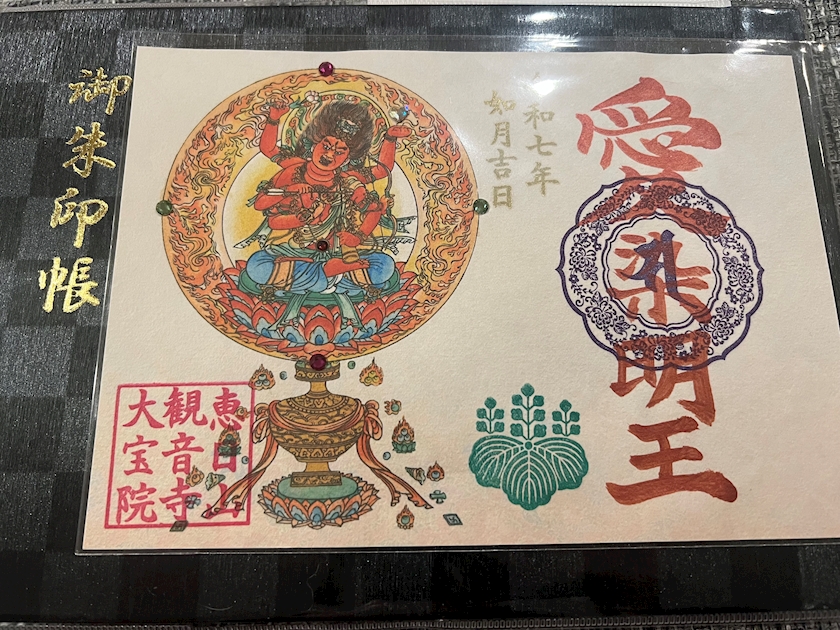 御朱印帳
愛染明王
和七年
如月吉日
恵日山
観音寺
大宝院